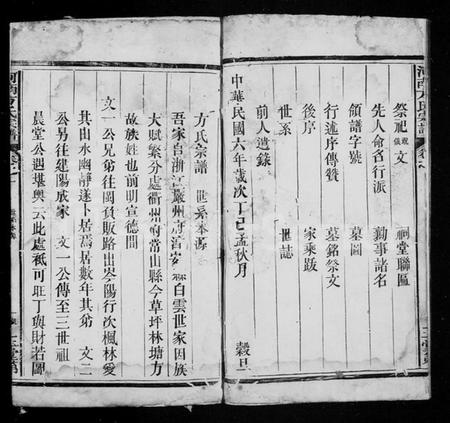 祭祀 觀儀 文 祠堂聯匾
先人命名行派 勷事諸名
領譜字號 墓圖
行述序傳贊 墓銘祭文
後序 家乘跋
世系 世誌
前人遺錄
中華民國六年歲次丁巳孟秋月 穀旦
方氏宗譜 世系本源
吾家自浙江嚴州府淳安縣白雲世家因族
大賦繁分處衢州府常山縣今草坪林塘方
故族姓也前明宣德間
文一公兄弟往閩貿販路出岑陽行次楓林愛
其山水幽靜遂卜居焉居數年其弟 文二
公另往建陽成家 文一公傳至三世祖
晨堂公遇堪輿云此處秪可旺丁與財若圖